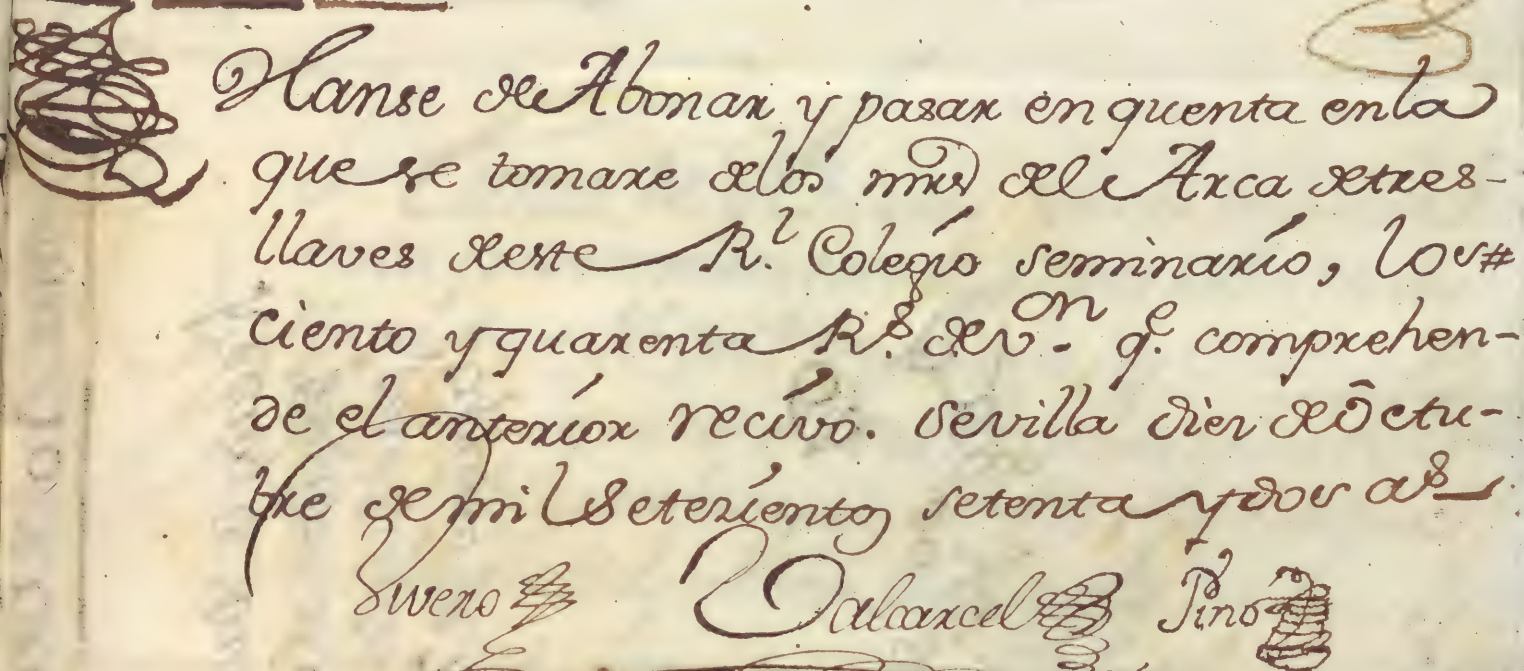 Hanse de Abonar y pasar en quenta en la
que se tomare de los mrs del Arca de tres-
llaves de este Rl. Colegio seminario, los#
ciento y quarenta Rs. de von. qe. comprehen-
de el anterior recivo. Sevilla diez de Octu-
bre de mil Setezientos setenta y dos as.
Valcarcel Pino